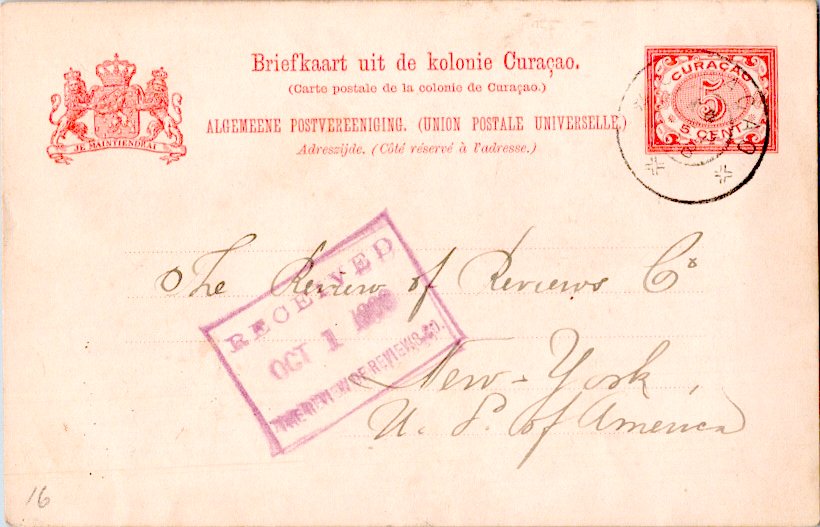 Briefkaart uit de kolonie Curaçao.
(Carte postale de la colonie de Curaçao.)
ALGEMEENE POSTVEREENIGING. (UNION POSTALE UNIVERSELLE)
Adreszijde. (Côté réservé à l'adresse.)
JE MAINTIENDRAI
CURAÇAO
5
5 CENT
The Review of Reviews Co
RECEIVED
OCT 1
THE REVIEW OF REVIEWS CO.
New-York,
U. S. of America
16